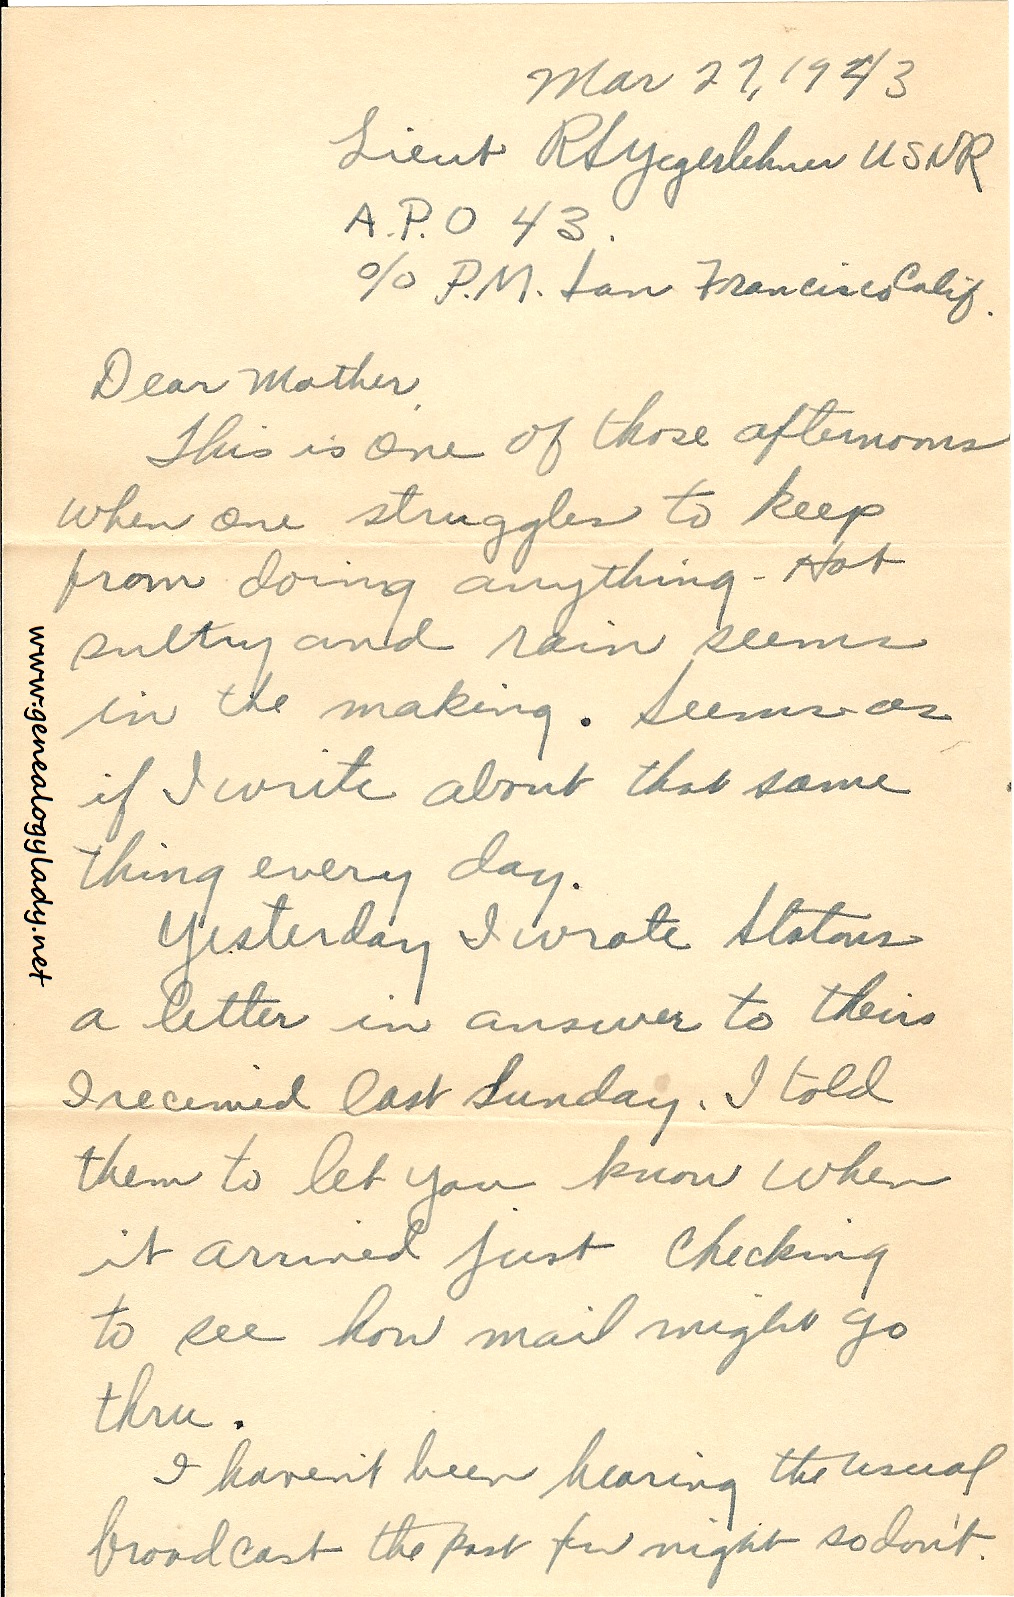 Mar 27, 1943
Lieut R S Yegerlehner USNR
A.P.O 43.
c/o P.M. San Francisco Calif.
Dear Mother,
This is one of those afternoons
when one struggles to keep
from doing anything - Hot
sultry and rain seems
in the making. Seems as
if I write about that same
thing every day.
Yesterday I wrote Statons
a letter in answer to theirs
I received last Sunday. I told
them to let you know when
it arrived just checking
to see how mail might go
thru.
I haven't been hearing the usual
broadcast the past few night so don't.
www.genealogylady.net